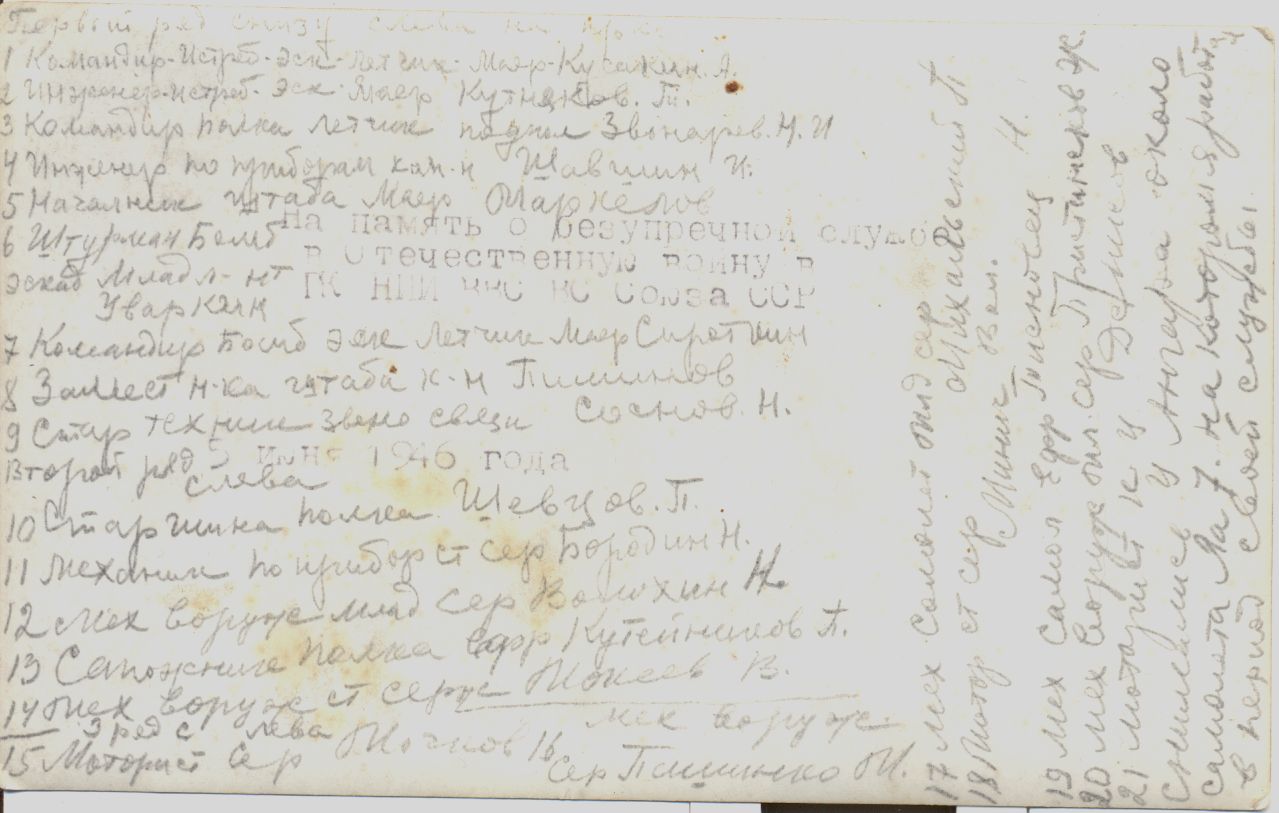 Первый ряд снизу слева на
1 Командир-Истреб-эск-летчик-Маер-Кусакин.А.
2 Инженер-истреб-эск Маер Кутняков. Т.
3 Командир полка летчик подпол Звонарев.Н.И
4 Инженер по приборам кап-н Шавшин И.
5 Началник штаба Маер Маркелов
6 Штурман Бомб
эскад Младл-нт
Уваркин
На память о безупречной службе
в Отечественную войну в
ГК НИИ ВВС ВС Союза ССР
7 Командир Бомб эск Летчик Маер Сироткин
8 Замест н-ка штаба к-н Пишинов
9 Стар техник звено связи Соснов. Н.
5 июня 1946 года
Второй ряд
слева
10 Старшина полка Шевцов.П.
11 механик по прибор ст сер Бородин Н.
12 Мех воруж млад сер Волохин Н.
13 Сапожник полка ефр Кутейников А.
14 Мех воруж ст серж Мокеев В.
3 ряд с лева
15 Моторист сер Мочнов 16 мех воруж
сер Пишинко М.
17 мех Самолет млд сер Михальский А
18 Мотор ст сер Минин Вол.
19 мех самол Ефр
20 мех воруж мл сер
21 мотарист к ц Денисов
Снимались у Ангара около
самолета Ла 7. на котором я работал
в период своей службы